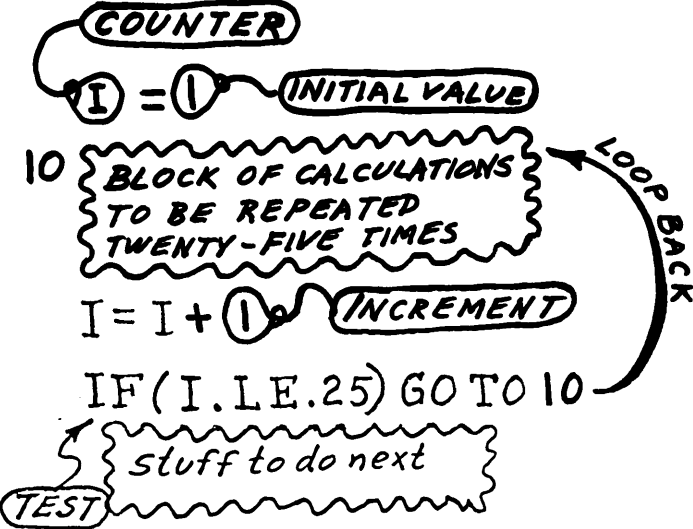 COUNTER
I = 1 INITIAL VALUE
10 BLOCK OF CALCULATIONS
TO BE REPEATED
TWENTY-FIVE TIMES
LOOP BACK
I = I + 1 INCREMENT
IF(I.LE.25) GO TO 10
stuff to do next
TEST